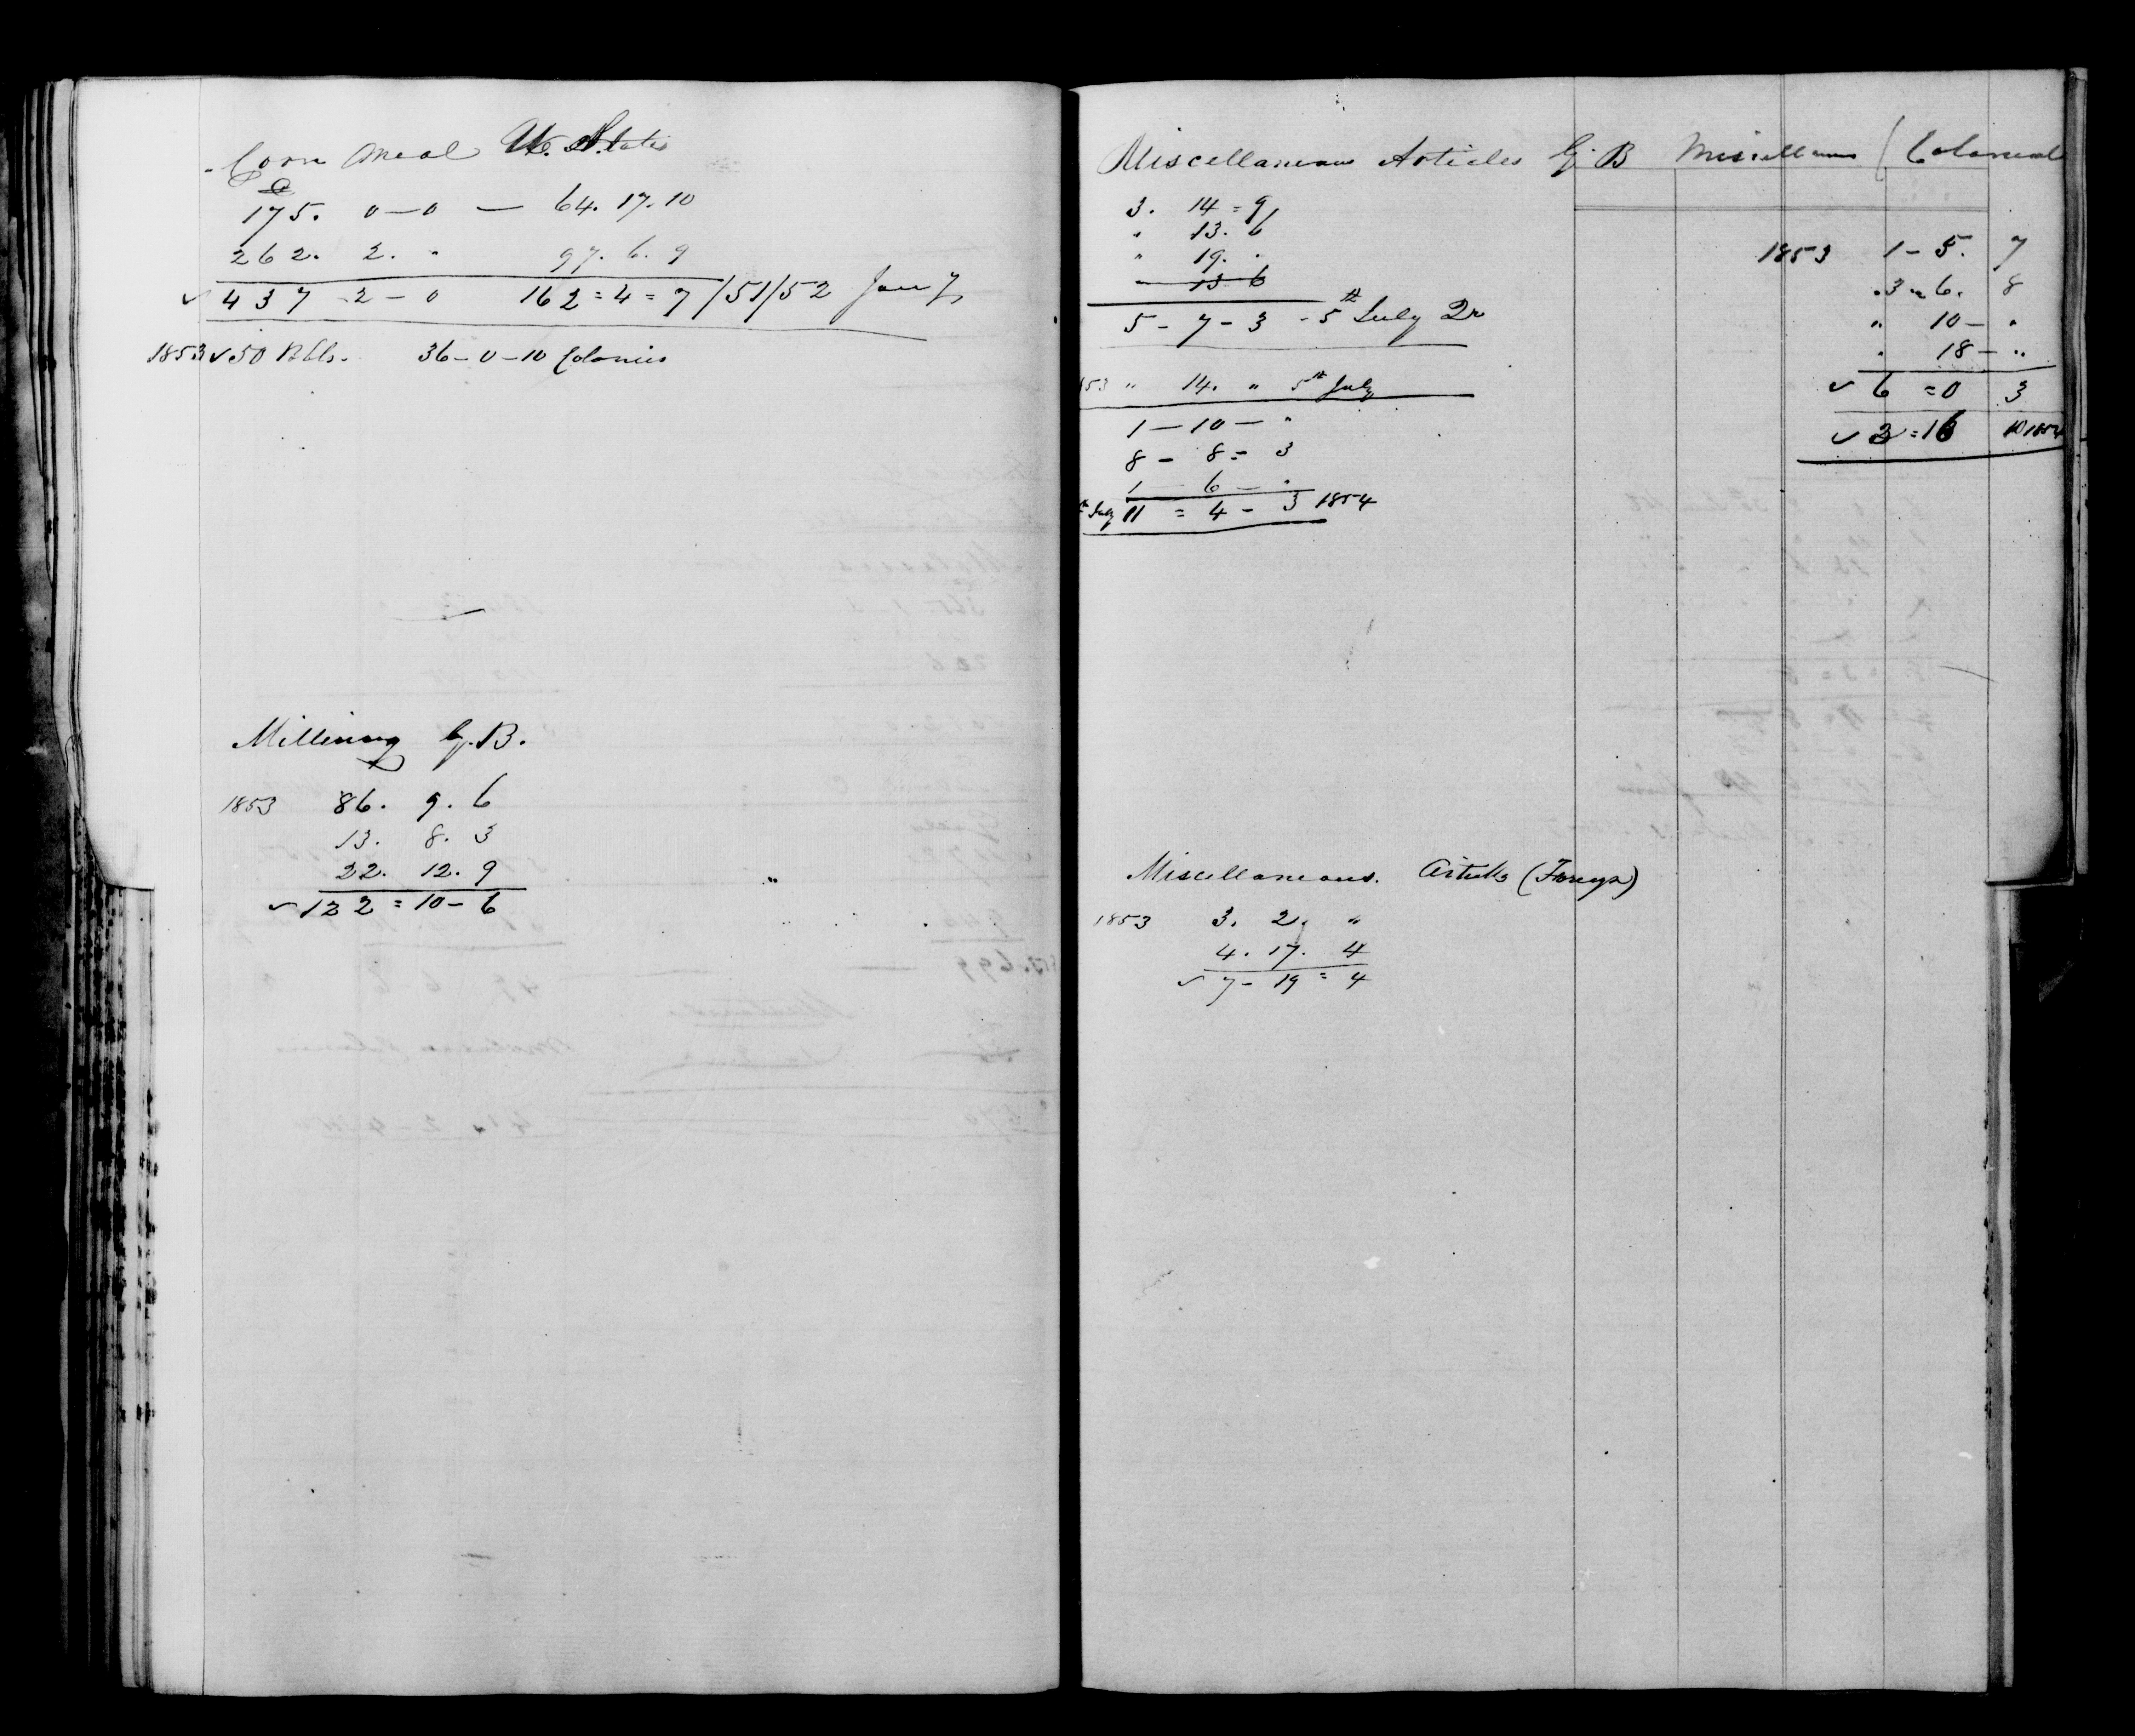 Corn Meal U. States
175. 0 — 0 — 64. 17. 10
262. 2. " 97. 6. 9
✓ 437 2 — 0 162 = 4 = 7 /51/52 Jany
1853 ✓ 50 Bbls. 36 — 0 — 10 Colonies
Millinery G. B.
1853 86. 9. 6
13. 8. 3
22. 12. 9
✓ 122 = 10 — 6
Miscellaneous Articles G. B
3. 14 = 9
" 13. 6
" 19. "
" 13 6
5 — 7 — 3 - 5th July
53 " 14. " 5th July
1 — 10 — "
8 — 8 = 3
1 — 6 — "
July 11 = 4 — 3 1854
Miscellaneous (Colonial
1853 1 — 5. 7
3 — 6. 8
" 10 — "
" 18 — "
✓ 6 = 0 3
✓ = 16 10 1854
Miscellaneous. Articles (Foreign)
1853 3. 2. "
4. 17. 4
✓ 7 — 19 = 4